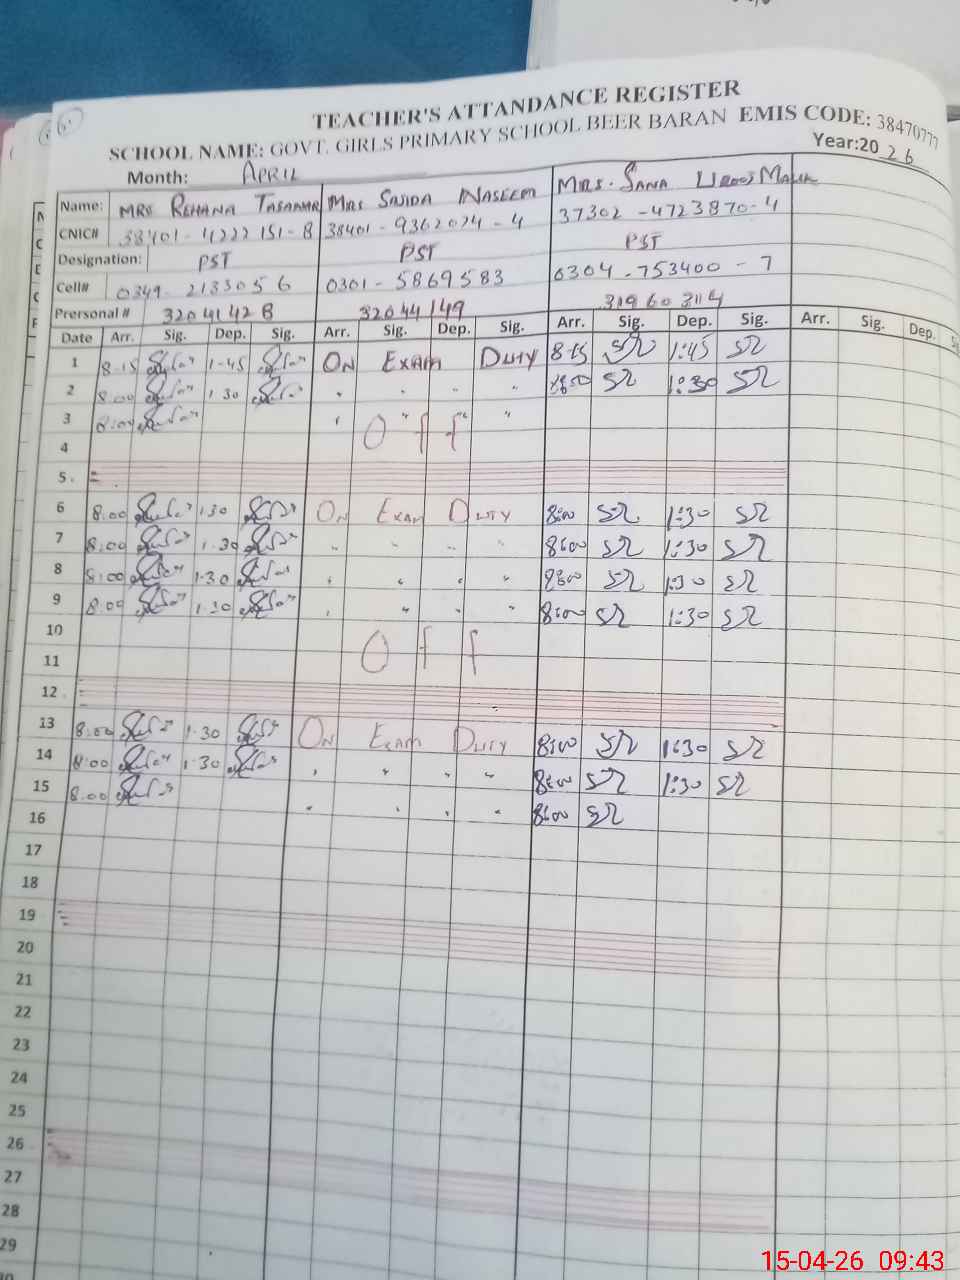 TEACHER'S ATTANDANCE REGISTER
SCHOOL NAME: GOVT. GIRLS PRIMARY SCHOOL BEER BARAN EMIS CODE: 38470777
Month: APRIL Year:2026
Name: MRS REHANA TASAWAR MRS SAJIDA NASEEM MRS. SANA UROOJ MALIK
CNIC# 38401-4222151-8 38401-9362074-4 37302-4723870-4
Designation: PST PST PST
Cell# 0349-2133056 0301-5869583 0304-753400-7
Prersonal # 32041428 32044149 31960314
Date Arr. Sig. Dep. Sig. Arr. Sig. Dep. Sig. Arr. Sig. Dep. Sig. Arr. Sig. Dep.
1 8-15 1-45 ON EXAM DUTY 8-15 1:45
2 8.00 1.30 " " " 1:30
3 8.00 " " " "
4 Off
5
6 8.00 1.30 ON EXAM DUTY 8:00 1:30
7 8.00 1.30 " " " " 8:00 1:30
8 8.00 1.30 " " " " 8:00 1:30
9 8.00 1.30 " " " " 8:00 1:30
10
11 Off
12
13 8.00 1.30 ON EXAM DUTY 8:00 1:30
14 8.00 1.30 " " " " 8:00 1:30
15 8.00 " " " " 8:00
16
17
18
19
20
21
22
23
24
25
26
27
28
29
15-04-26 09:43